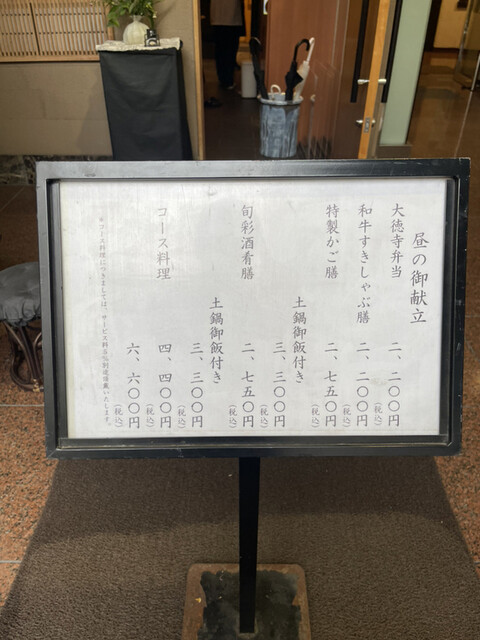 昼の御献立
大徳寺弁当 二、二〇〇円(税込)
和牛すきしゃぶ膳 二、二〇〇円(税込)
特製かご膳 二、七五〇円(税込)
土鍋御飯付き 三、三〇〇円(税込)
旬彩酒肴膳 二、七五〇円(税込)
土鍋御飯付き 三、三〇〇円(税込)
コース料理 四、四〇〇円(税込)
六、六〇〇円(税込)
※コース料理につきましては、サービス料5%別途頂戴いたします。